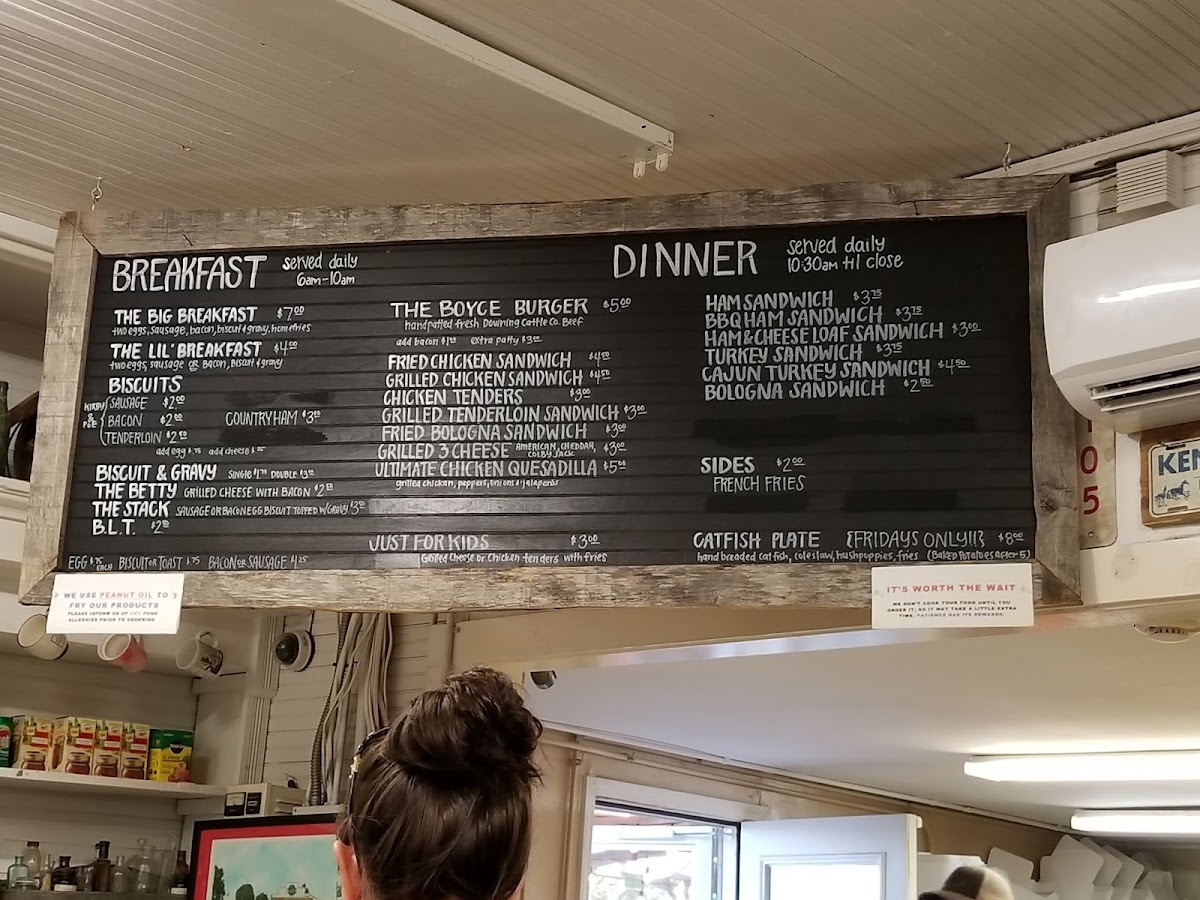 BREAKFAST served daily
6am-10am
THE BIG BREAKFAST $7.00
two eggs, sausage, bacon, biscuit & gravy, homefries
THE LIL' BREAKFAST $4.00
two eggs, sausage OR bacon, biscuit & gravy
BISCUITS
SAUSAGE $2.00
BACON $2.00
TENDERLOIN $2.50
COUNTRY HAM
add egg $.75 add cheese
BISCUIT & GRAVY SINGLE $1.75 DOUBLE
THE BETTY GRILLED CHEESE WITH BACON
THE STACK SAUSAGE OR BACON EGG BISCUIT TOPPED W/GRAVY
B.L.T.
EGG $.75 EACH BISCUIT OR TOAST $.75 BACON OR SAUSAGE $1.25
THE BOYCE BURGER $5.00
handpatted fresh Downing Cattle Co. Beef
add bacon extra patty
FRIED CHICKEN SANDWICH $4.50
GRILLED CHICKEN SANDWICH $4.50
CHICKEN TENDERS $3.00
GRILLED TENDERLOIN SANDWICH $3.00
FRIED BOLOGNA SANDWICH $3.00
GRILLED 3 CHEESE AMERICAN, CHEDDAR, COLBY JACK $3.00
ULTIMATE CHICKEN QUESADILLA $5.00
grilled chicken, peppers, onions & jalapeños
JUST FOR KIDS $3.00
Grilled Cheese or Chicken tenders with fries
DINNER served daily
10:30am til close
HAM SANDWICH $3.75
BBQ HAM SANDWICH $3.75
HAM & CHEESE LOAF SANDWICH $3.00
TURKEY SANDWICH $3.75
CAJUN TURKEY SANDWICH $4.50
BOLOGNA SANDWICH $2.50
SIDES $2.00
FRENCH FRIES
CATFISH PLATE {FRIDAYS ONLY!!} $8.00
hand breaded catfish, coleslaw, hushpuppies, fries (BAKED POTATOES AFTER 5)
WE USE PEANUT OIL TO
FRY OUR PRODUCTS
PLEASE INFORM US OF ANY FOOD
ALLERGIES PRIOR TO ORDERING
IT'S WORTH THE WAIT
WE DON'T COOK YOUR FOOD UNTIL YOU
ORDER IT, SO IT MAY TAKE A LITTLE EXTRA
TIME. PATIENCE HAS ITS REWARDS.
05
KEN